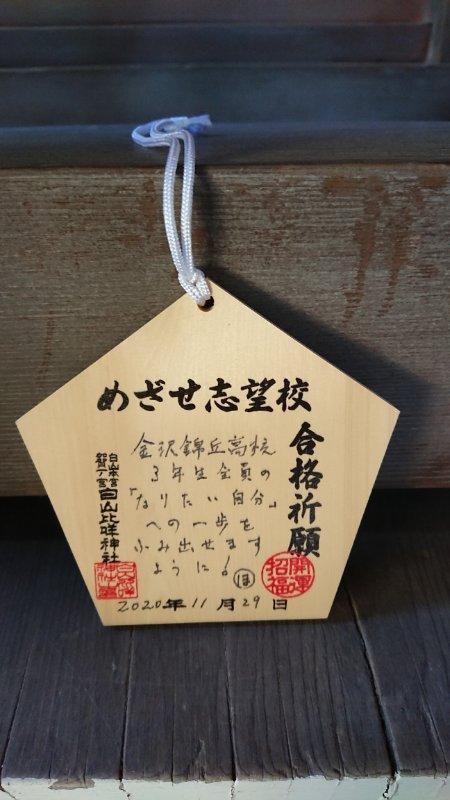 めざせ志望校
合格祈願
金沢錦丘高校
3年生全員の
「なりたい自分」
への一歩を
ふみ出せます
ように!
ほ
開運
招福
白山比咩神社
2020年11月29日